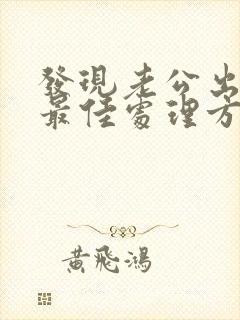 發現老公出
最佳處理方
黃飛鴻